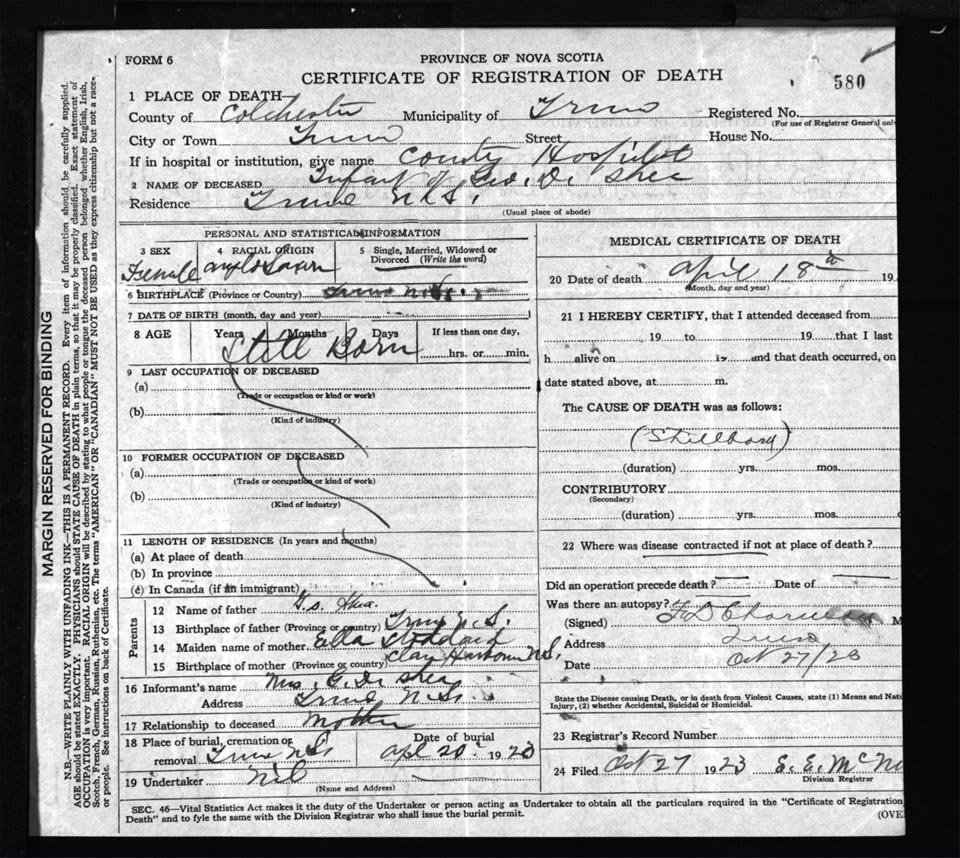 FORM 6
PROVINCE OF NOVA SCOTIA
CERTIFICATE OF REGISTRATION OF DEATH
580
1 PLACE OF DEATH
County of Colchester Municipality of Truro Registered No.
(For use of Registrar General only
City or Town Truro Street House No.
If in hospital or institution, give name County Hospital
2 NAME OF DECEASED Infant of Geo. D. Shea
Residence Truro N.S.
(Usual place of abode)
PERSONAL AND STATISTICAL INFORMATION
3 SEX 4 RACIAL ORIGIN 5 Single, Married, Widowed or
Divorced (Write the word)
Female anglo Saxon
6 BIRTHPLACE (Province or Country) Truro N.S.
7 DATE OF BIRTH (month, day and year)
8 AGE Years Months Days If less than one day,
Still Born hrs. or min.
9 LAST OCCUPATION OF DECEASED
(a)
(Trade or occupation or kind or work)
(b)
(Kind of industry)
10 FORMER OCCUPATION OF DECEASED
(a)
(Trade or occupation or kind of work)
(b)
(Kind of industry)
11 LENGTH OF RESIDENCE (In years and months)
(a) At place of death
(b) In province
(c) In Canada (if an immigrant)
Parents
12 Name of father G.D. Shea.
13 Birthplace of father (Province or country) Truro N.S.
14 Maiden name of mother Ella Stoddard
15 Birthplace of mother (Province or country) Clam Harbour N.S.
16 Informant's name Mrs. G. D. Shea
Address Truro N.S.
17 Relationship to deceased Mother
18 Place of burial, cremation or Date of burial
removal Truro N.S. Apl 20 1923
19 Undertaker Nil
(Name and Address)
MEDICAL CERTIFICATE OF DEATH
20 Date of death April 18th 19
(Month, day and year)
21 I HEREBY CERTIFY, that I attended deceased from
19 to 19 that I last
h alive on 19 and that death occurred, on
date stated above, at m.
The CAUSE OF DEATH was as follows:
(Stillborn)
(duration) yrs. mos.
CONTRIBUTORY
(Secondary)
(duration) yrs. mos.
22 Where was disease contracted if not at place of death?
Did an operation precede death? Date of
Was there an autopsy?
(Signed) M
Address Truro
Date Oct 27/23
State the Disease causing Death, or in death from Violent Causes, state (1) Means and Natu
Injury, (2) whether Accidental, Suicidal or Homicidal.
23 Registrar's Record Number
24 Filed Oct 27 1923 E. E. McN
Division Registrar
SEC. 46—Vital Statistics Act makes it the duty of the Undertaker or person acting as Undertaker to obtain all the particulars required in the "Certificate of Registration
Death" and to fyle the same with the Division Registrar who shall issue the burial permit.
(OVE
MARGIN RESERVED FOR BINDING
N.B.—WRITE PLAINLY WITH UNFADING INK—THIS IS A PERMANENT RECORD. Every item of information should be carefully supplied.
AGE should be stated EXACTLY. PHYSICIANS should STATE CAUSE OF DEATH in plain terms, so that it may be properly classified. Exact statement of
OCCUPATION is very important. RACIAL ORIGIN will be described by stating to what people or tongue the deceased person belonged whether English, Irish,
Scotch, French, German, Russian, Ruthenian, etc. The terms "AMERICAN" OR "CANADIAN" MUST NOT BE USED as they express citizenship but not a race
or people. See instructions on back of Certificate.